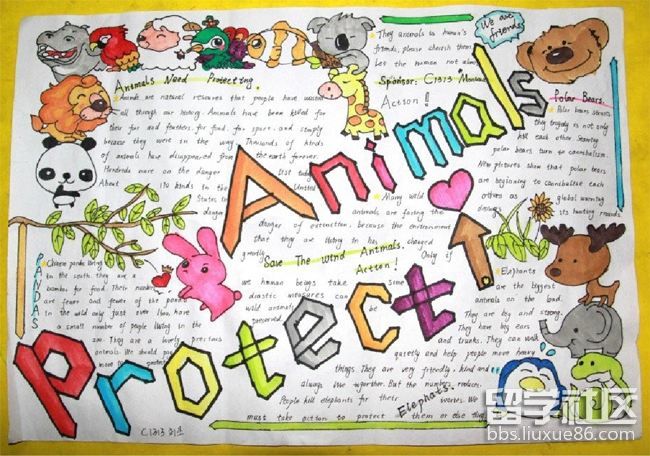 They animals is human's
friends, please cherish them.
Let the human not alone
Sponsor: C1313
Action!
We are
friends
Animals Need Protecting.
Animals are natural resources that people have wasted
all through our history. Animals have been killed for
their fur and feathers, for food, for sport, and simply
because they were in the way. Thousands of kinds
of animals have disappeared from the earth forever.
Hundreds more are on the danger list today
About 170 kinds in the United
States in
danger
Animals
Protect
Polar Bears.
Polar bears starve
they tragedy is not only
kill each other starving
polar bears turn to cannibalism.
New pictures show that polar bears
are beginning to cannibalise each
others as global warming
destroys its hunting grounds
Many wild
animals are facing the
danger of extinction, because the environment
that they are living in has changed
greatly. Only if
Save The Wind Animals.
Action!
we human beings take some
drastic measures can
wild animals be
preserved.
PANDAS
Chinese panda living
in the south. they are a
bamboo for food. Their number
are fewer and fewer of the panda
in the wild only just over have
a small number of people living in the
They are a lovely precious
animals. We should pay
more
Elephants
are the biggest
animals on the land.
They are big and strong.
They have big ears
and trunks. They can walk
quietly and help people move heavy
things. They are very friendly, kind and
always live together. But the number reduces.
People kill elephants for their ivories. We
must take action to protect them or else they
Elephants!
C1313
留学社区
bbs.liuxue86.com